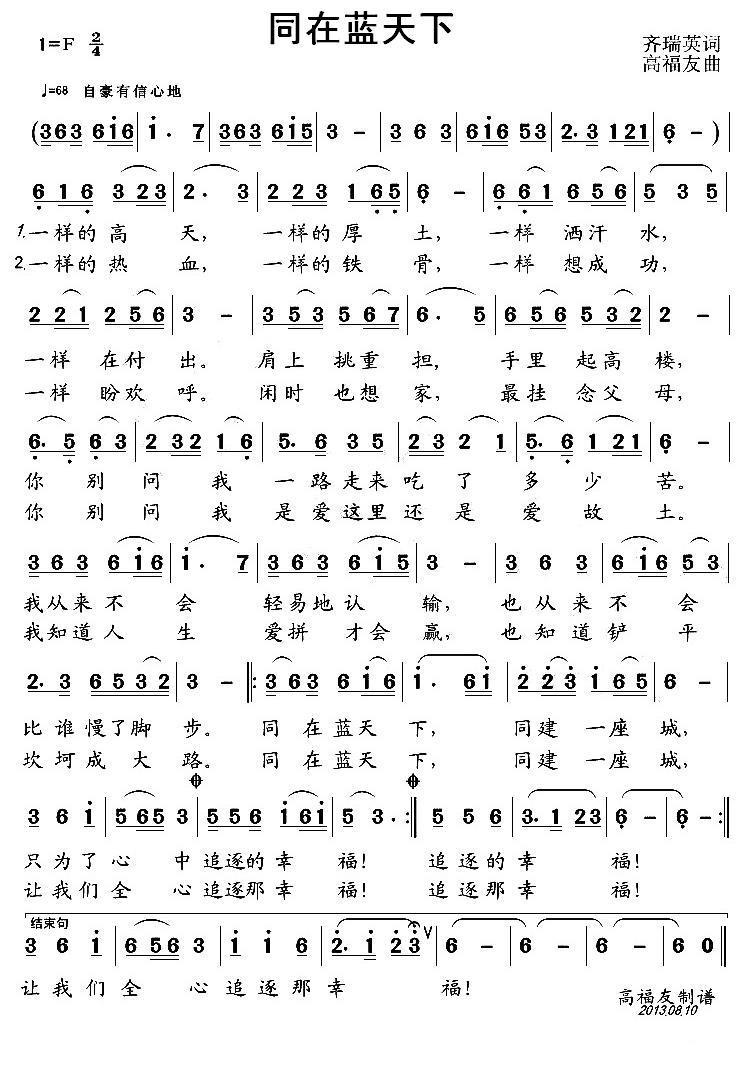 同在蓝天下
1=F 2/4
齐瑞英词
高福友曲
♩=68 自豪有信心地
(363 6i6 | i· 7 | 363 6i5 | 3 - | 3 6 3 | 6i6 53 | 2·3 121 | 6 - )
6 1 6 3 23 | 2· 3 | 2 23 1 65 | 6 - | 6 61 6 56 | 5 3 5
1.一样的高 天, 一样的厚 土, 一样 洒汗 水,
2.一样的热 血, 一样的铁 骨, 一样 想成 功,
2 21 2 56 | 3 - | 3 53 5 67 | 6· 5 | 656 532 | 2 -
一样 在付 出。 肩上 挑重 担, 手里 起高 楼,
一样 盼欢 呼。 闲时 也想 家, 最挂 念父 母,
6·5 6 3 | 2 32 1 6 | 5· 6 35 | 2 3 2 1 | 5·6 1 21 | 6 -
你 别 问 我 一路走来吃 了 多 少 苦。
你 别 问 我 是爱这里还 是 爱 故 土。
3 6 3 6 i6 | i· 7 | 3 6 3 6 i5 | 3 - | 3 6 3 | 6 i6 53
我从来不 会 轻易地认 输, 也从来不 会
我知道人 生 爱拼 才会 赢, 也知道铲 平
2·3 6532 | 3 - |: 363 6i6 | i· 6i | 2·3 i65 | 6 -
比谁慢了脚 步。 同 在蓝天 下, 同建 一座 城,
坎坷成大 路。 同 在蓝天 下, 同建 一座 城,
3 6 i | 5 65 3 | 5 5 6 i 6i | 5 3· :| 5 5 6 | 3·1 23 | 6 - | 6 - :|
只为了心 中追逐的幸 福! 追逐的幸 福!
让我们全 心追逐那幸 福! 追逐那幸 福!
结束句
3 6 i | 6 56 3 | i i 6 | 2·i 23 V | 6 - | 6 - | 6 - | 6 0 ‖
让我们全 心追逐那幸 福!
高福友制谱
2013.08.10